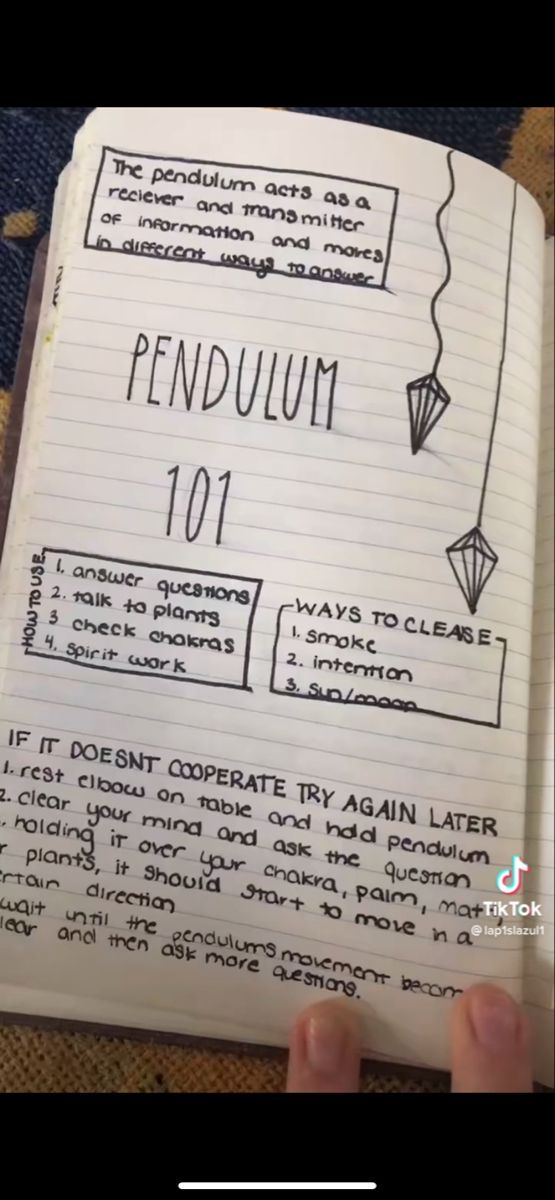 The pendulum acts as a
reciever and transmitter
of information and moves
in different ways to answer
PENDULUM
101
HOW TO USE
1. answer questions
2. talk to plants
3 check chakras
4. spirit work
WAYS TO CLEASE
1. smoke
2. intention
3. sun/moon
IF IT DOESNT COOPERATE TRY AGAIN LATER
1. rest elbow on table and hold pendulum
2. clear your mind and ask the question
holding it over your chakra, palm, mat
plants, it should start to move in a
direction
wait until the pendulums movement
and then ask more questions.
TikTok
@lap1slazul1